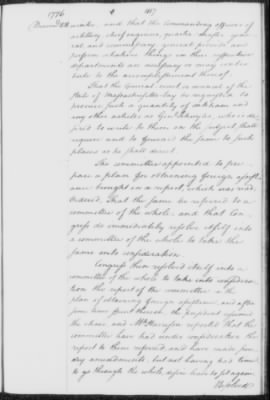 1776
417
water, and that the commanding officers of
artillery chief engineer, quarter master gene-
ral and commissary general provide and
perform whatever things in their respective
departments are necessary or may contri-
bute to the accomplishment thereof.
That the General court or council of the
State of Massachusetts bay be requested to
provide such a quantity of and
any other articles as Genl Schuyler, who is de-
sired to write to them on the subject, shall
require and to forward the same to such
places as he shall direct.
The committee appointed to pre-
pare a plan for obtaining foreign assist-
ance brought in a report, which was read.
Ordered, That the same be referred to a
committee of the whole, and that Con-
gress do immediately resolve itself into
a committee of the whole to take the
same into consideration.
Congress then resolved itself into a
committee of the whole to take into considera-
tion the report of the committee on the
plan of obtaining foreign assistance, and after
some time spent thereon the president resumed
the chair and Mr Harrison reported that the
committee have had under consideration the
report to them referred, and have made sun-
dry amendments, but not having had time
to go through the whole, desire leave to sit again.
Resolved